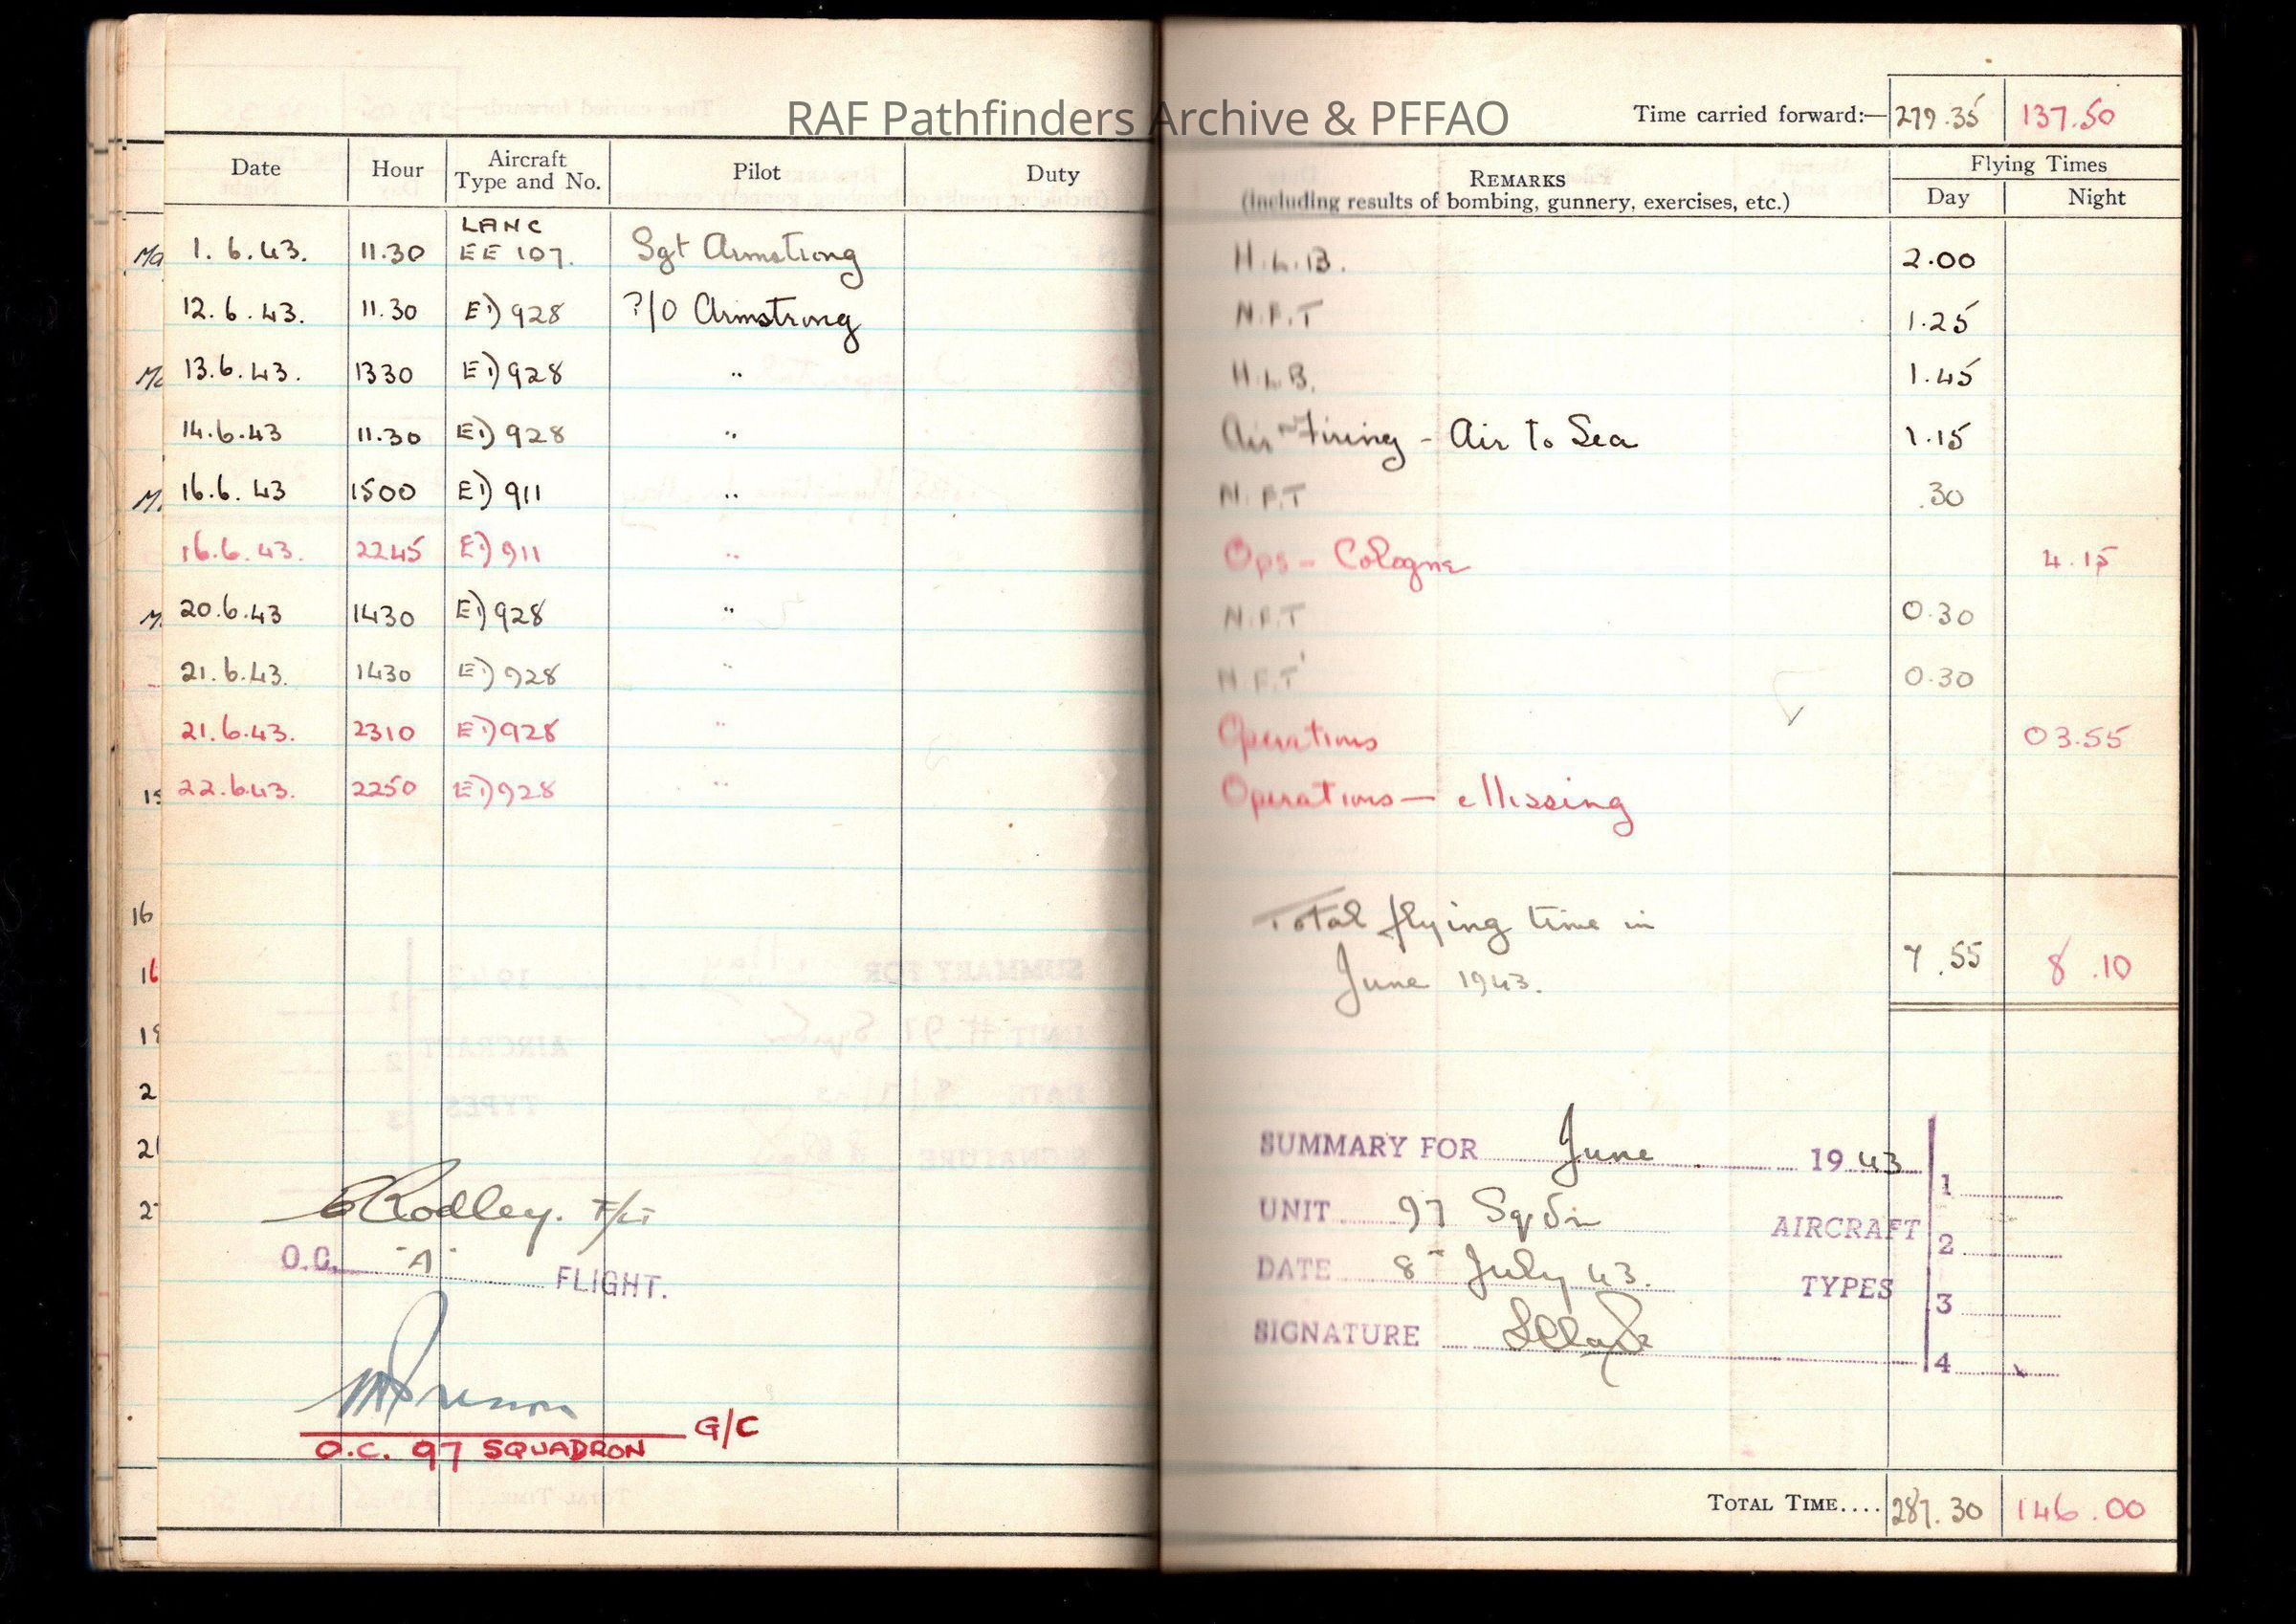 RAF Pathfinders Archive & PFFAO
Time carried forward:— 279.35 137.50
Date Hour Aircraft Type and No. Pilot Duty REMARKS (Including results of bombing, gunnery, exercises, etc.) Flying Times Day Night
1.6.43. 11.30 LANC EE 107. Sgt Armstrong H.L.B. 2.00
12.6.43. 11.30 ED 928 P/O Armstrong N.F.T 1.25
13.6.43. 1330 ED 928 " H.L.B. 1.45
14.6.43 11.30 ED 928 " Air Firing - Air to Sea 1.15
16.6.43 1500 ED 911 " N.F.T .30
16.6.43. 2245 ED 911 " Ops - Cologne 4.15
20.6.43 1430 ED 928 " N.F.T 0.30
21.6.43. 1430 ED 928 " N.F.T 0.30
21.6.43. 2310 ED 928 " Operations 03.55
22.6.43. 2250 ED 928 " Operations — Missing
Total flying time in
June 1943. 7.55 8.10
SUMMARY FOR June 1943
UNIT 97 Sqdn
DATE 8th July 43.
SIGNATURE
AIRCRAFT TYPES
1
2
3
4
Rodley. F/Lt
O.C. "A" FLIGHT.
G/C
O.C. 97 SQUADRON
TOTAL TIME.... 287.30 146.00